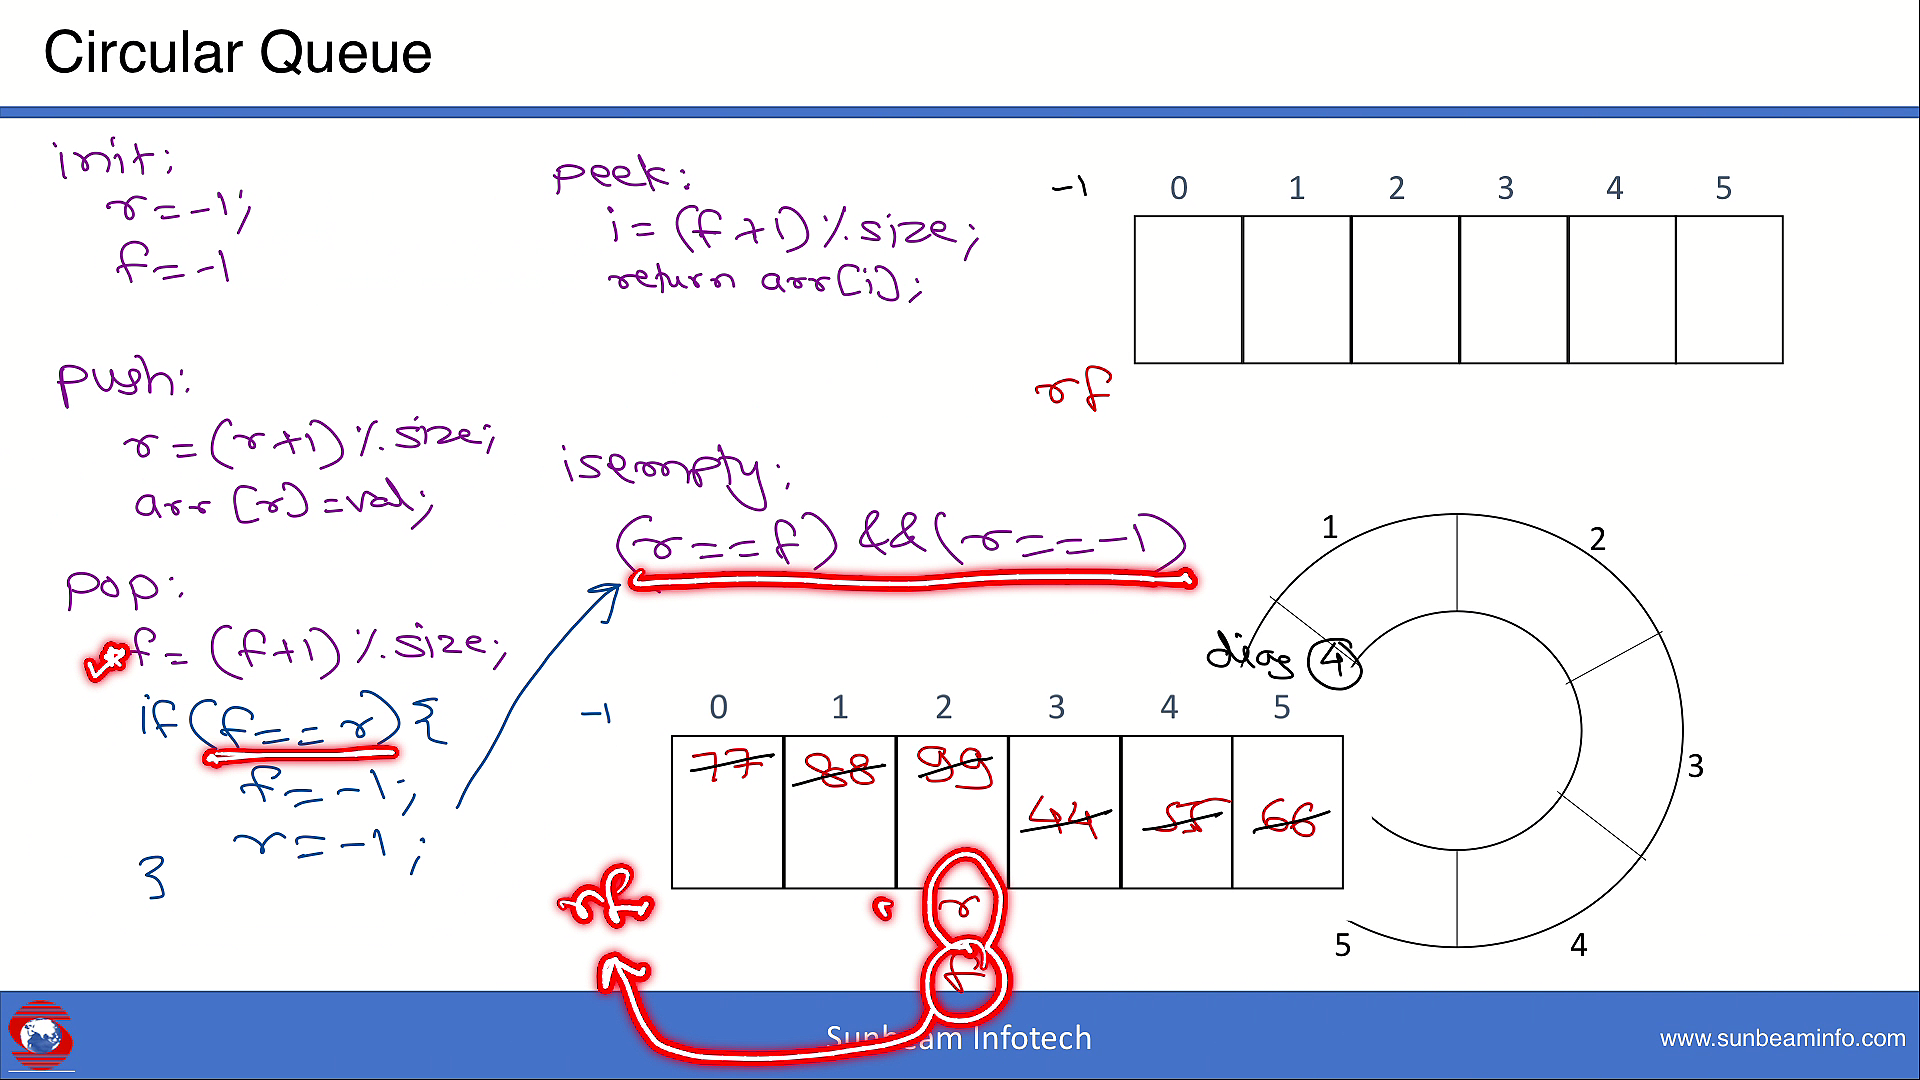 Circular Queue
init:
r=-1;
f=-1
push:
r=(r+1)%size;
arr[r]=val;
pop:
f=(f+1)%size;
if(f==r){
f=-1;
r=-1;
}
peek:
i=(f+1)%size;
return arr[i];
isempty:
(r==f)&&(r==-1)
-1 0 1 2 3 4 5
rf
1 2 3 4 5
diag 4
-1 0 1 2 3 4 5
77 88 99 44 55 66
rf r
f
Sunbeam Infotech
www.sunbeaminfo.com